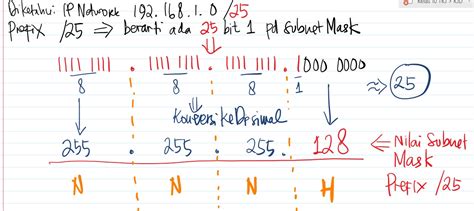 Diketahui: IP Network 192.168.1.0 /25
Prefix /25 ⇒ berarti ada 25 bit 1 pd Subnet Mask
1111 1111 . 1111 1111 . 1111 1111 . 1000 0000
8 8 8 1 ⇒ 25
Konversi ke Desimal
255 . 255 . 255 . 128 ⇐ Nilai Subnet
Mask
N N N H Prefix /25